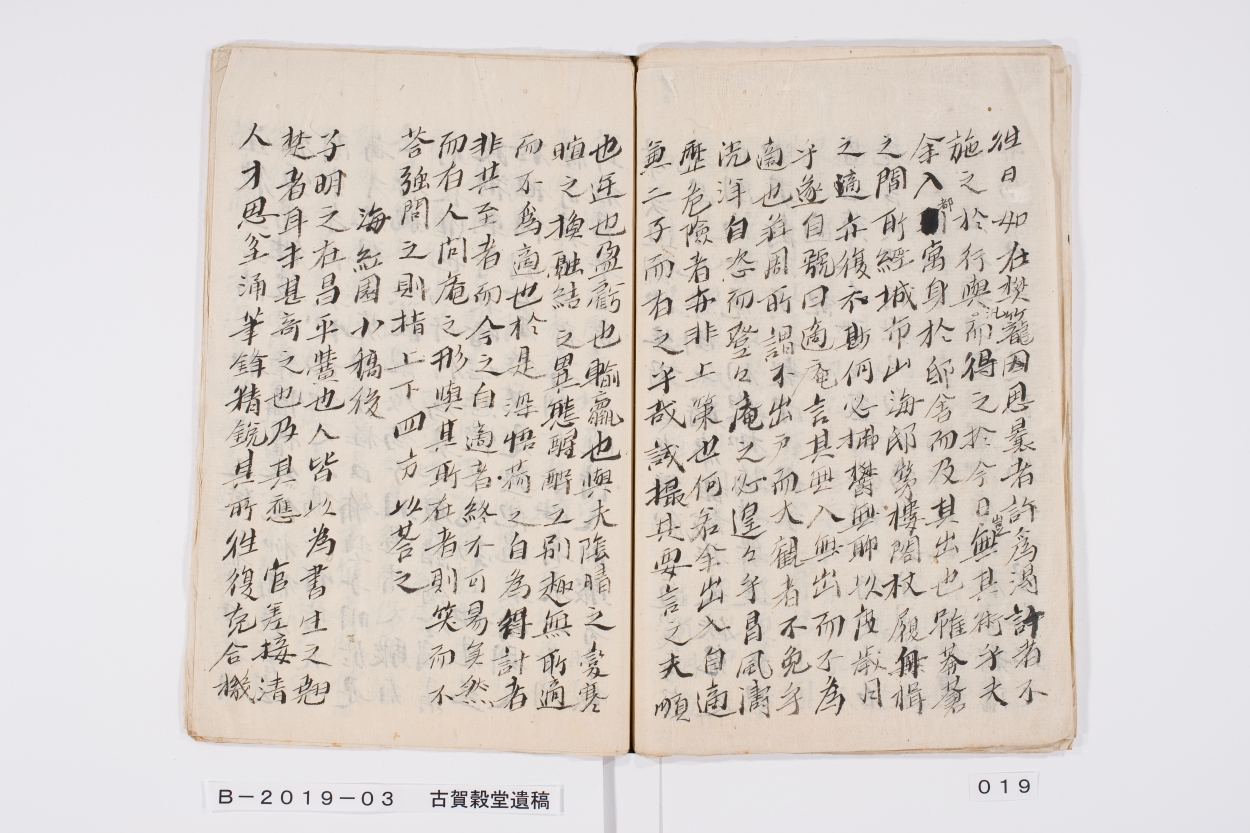 往日如在樊籠因思曩者許為
施之於行輿而得之於今日無豈其術乎夫
余入都寓身於邸舍而及其出也雖莽蒼
之間所經城市山海邸第樓閣杖履舟楫
之適亦復不尠何必拂鬱無聊以度歲月
乎遂自號曰適庵言其無入無出而不為
適也莊周所謂不出戶而大觀者不免乎
洸洋自恣而登々庵之必遑々乎冒風濤
歷危險者亦非上策也何若余出入自適
兼二子而有之乎哉試撮其要言之夫順
也逆也盈虧也輸贏也與夫陰晴之變寒
暄之換融結之異態醒醉之別趣無所適
而不為適也於是深悟前之自為得計者
非其至者而今之自適者終不可易矣然
而有人問庵之形與其所在者則笑而不
荅強問之則指上下四方以荅之
海紅園小稿後
子明之在昌平黌也人皆以為書生之翹
楚者耳未甚奇之也乃其應官差接清
人才思坌涌筆鋒精銳其所往復克合機
B－2019－03　古賀穀堂遺稿
019